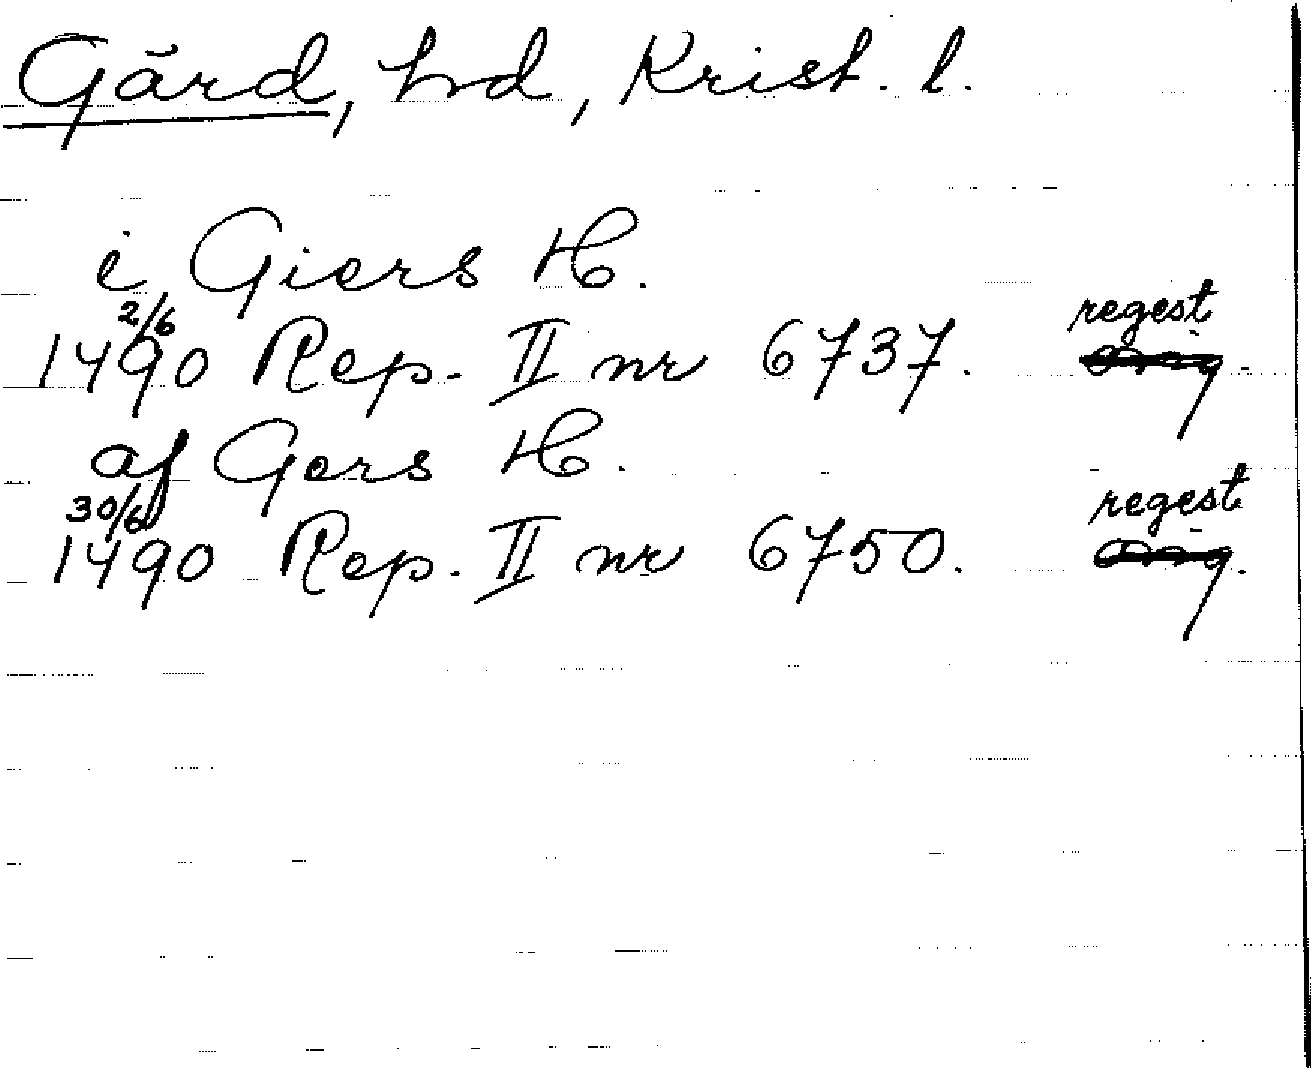 Gärd, hd, Krist. l.
i Giers H.
2/6 regest
1490 Rep. II nr 6737.
af Gers H.
30/6 regest
1490 Rep. II nr 6750.